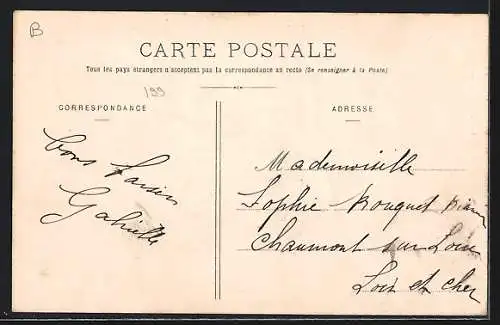 B
CARTE POSTALE
Tous les pays étrangers n'acceptent pas la correspondance au recto (Se renseigner à la Poste)
199
CORRESPONDANCE
bons
Gabrielle
ADRESSE
Mademoiselle
Sophie Rouquet
Chaumont sur Loire
Loir et cher